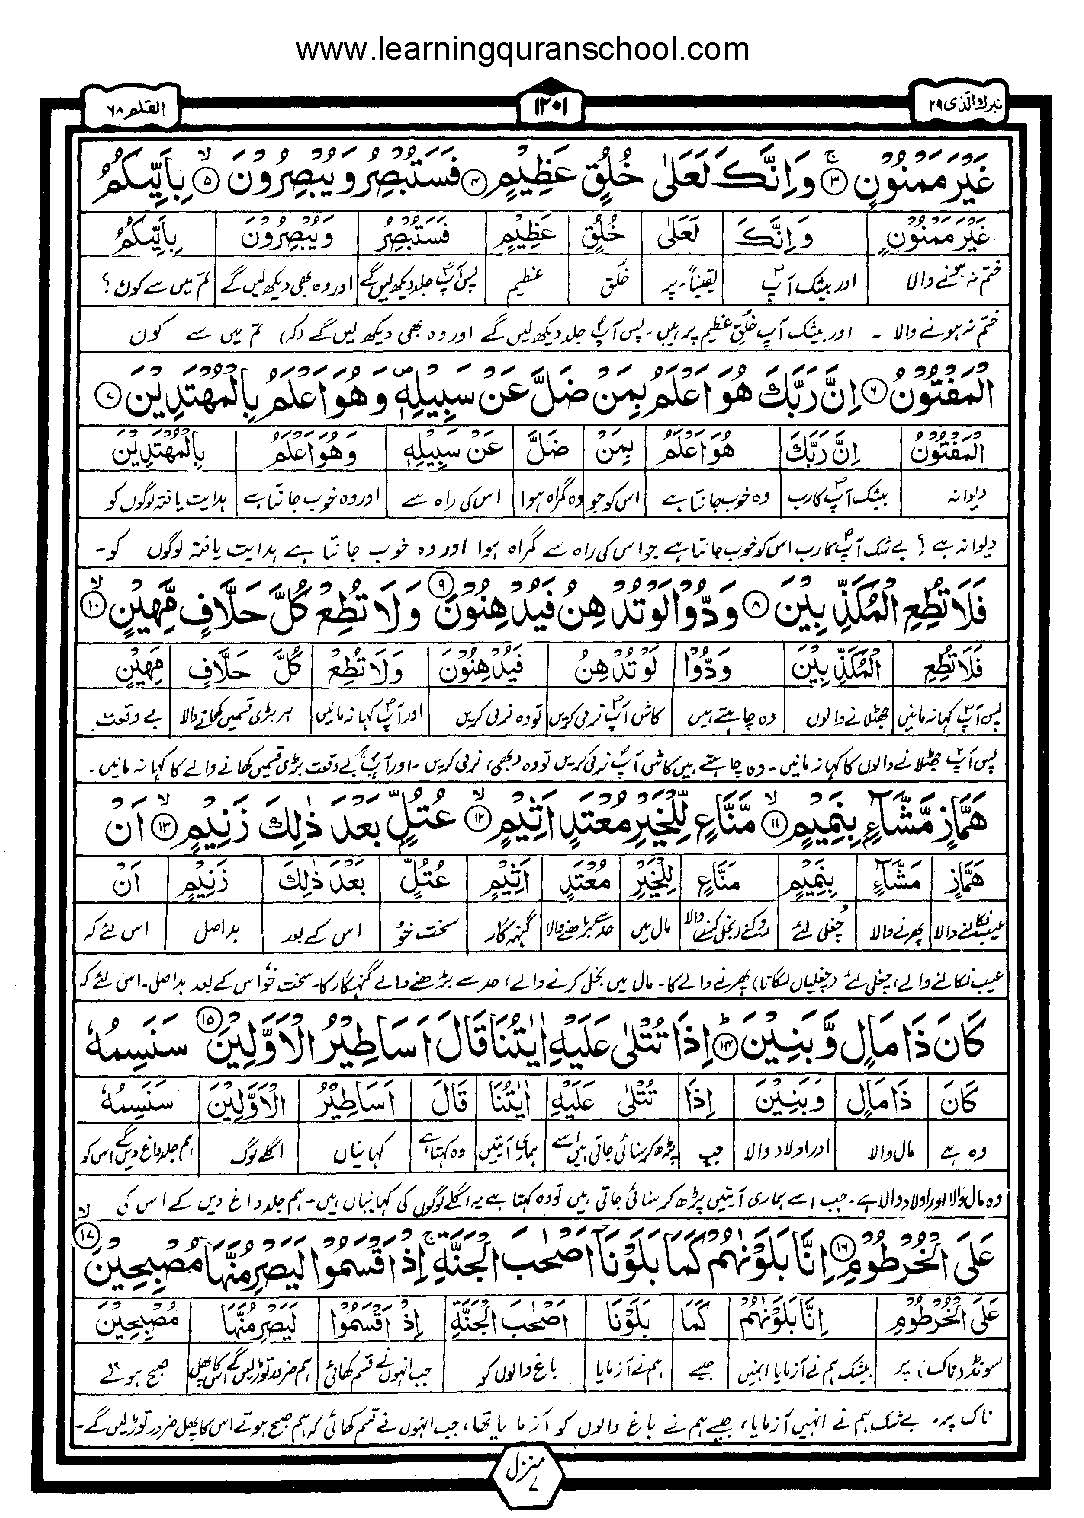 www.learningquranschool.com
تبارك الذی ۲۹
۱۲۰۱
القلم ۶۸
غَيْرَ مَمْنُوْنٍ ۳ وَاِنَّكَ لَعَلٰى خُلُقٍ عَظِيْمٍ ۴ فَسَتُبْصِرُ وَيُبْصِرُوْنَ ۵ بِاَيِّكُمُ
غَيْرَ مَمْنُوْنٍ وَاِنَّكَ لَعَلٰى خُلُقٍ عَظِيْمٍ فَسَتُبْصِرُ وَيُبْصِرُوْنَ بِاَيِّكُمُ
ختم نہ ہونے والا اور بیشک آپؐ یقیناً۔ پر خُلق عظیم پس آپؐ جلد دیکھ لیں گے اور وہ بھی دیکھ لیں گے تم میں سے کون؟
ختم نہ ہونے والا ۔ اور بیشک آپؐ خُلقِ عظیم پر ہیں۔ پس آپؐ جلد دیکھ لیں گے اور وہ بھی دیکھ لیں گے (کہ) تم میں سے کون
الْمَفْتُوْنُ ۶ اِنَّ رَبَّكَ هُوَ اَعْلَمُ بِمَنْ ضَلَّ عَنْ سَبِيْلِهٖ وَهُوَ اَعْلَمُ بِالْمُهْتَدِيْنَ ۷
الْمَفْتُوْنُ اِنَّ رَبَّكَ هُوَ اَعْلَمُ بِمَنْ ضَلَّ عَنْ سَبِيْلِهٖ وَهُوَ اَعْلَمُ بِالْمُهْتَدِيْنَ
دیوانہ بیشک آپؐ کا رب وہ خوب جانتا ہے اس کو جو وہ گمراہ ہوا اس کی راہ سے اور وہ خوب جانتا ہے ہدایت یافتہ لوگوں کو
دیوانہ ہے؟ بے شک آپؐ کا رب اس کو خوب جانتا ہے جو اس کی راہ سے گمراہ ہوا اور وہ خوب جانتا ہے ہدایت یافتہ لوگوں کو۔
فَلَا تُطِعِ الْمُكَذِّبِيْنَ ۸ وَدُّوْا لَوْ تُدْهِنُ فَيُدْهِنُوْنَ ۹ وَلَا تُطِعْ كُلَّ حَلَّافٍ مَّهِيْنٍ ۱۰
فَلَا تُطِعِ الْمُكَذِّبِيْنَ وَدُّوْا لَوْ تُدْهِنُ فَيُدْهِنُوْنَ وَلَا تُطِعْ كُلَّ حَلَّافٍ مَهِيْنٍ
پس آپؐ کہا نہ مانیں جھٹلانے والوں وہ چاہتے ہیں کاش آپؐ نرمی کریں تو وہ نرمی کریں اور آپؐ کہا نہ مانیں ہر بڑی قسمیں کھانے والا بے وقعت
پس آپؐ جھٹلانے والوں کا کہا نہ مانیں۔ وہ چاہتے ہیں کاش آپؐ نرمی کریں تو وہ (بھی) نرمی کریں۔ اور آپؐ بے وقعت بڑی قسمیں کھانے والے کا کہا نہ مانیں۔
هَمَّازٍ مَّشَّآءٍۭ بِنَمِيْمٍ ۱۱ مَّنَّاعٍ لِّلْخَيْرِ مُعْتَدٍ اَثِيْمٍ ۱۲ عُتُلٍّۭ بَعْدَ ذٰلِكَ زَنِيْمٍ ۱۳ اَنْ
هَمَّازٍ مَشَّآءٍ بِنَمِيْمٍ مَنَّاعٍ لِلْخَيْرِ مُعْتَدٍ اَثِيْمٍ عُتُلٍّ بَعْدَ ذٰلِكَ زَنِيْمٍ اَنْ
عیب نکالنے والا پھرنے والا چغلی لئے روکنے (بخل کرنے) والا مال میں حد سے بڑھنے والا گنہگار سخت خو اس کے بعد بد اصل اس لئے کہ
عیب نکالنے والے، چغلی لئے (چغلیاں لگاتا) پھرنے والے کا۔ مال میں بخل کرنے والے، حد سے بڑھنے والے گنہگار کا۔ سخت خو اس کے بعد بد اصل۔ اس لئے کہ
كَانَ ذَا مَالٍ وَّبَنِيْنَ ۱۴ اِذَا تُتْلٰى عَلَيْهِ اٰيٰتُنَا قَالَ اَسَاطِيْرُ الْاَوَّلِيْنَ ۱۵ سَنَسِمُهٗ
كَانَ ذَا مَالٍ وَبَنِيْنَ اِذَا تُتْلٰى عَلَيْهِ اٰيٰتُنَا قَالَ اَسَاطِيْرُ الْاَوَّلِيْنَ سَنَسِمُهٗ
وہ ہے مال والا اور اولاد والا جب پڑھ کر سنائی جاتی ہیں اسے ہماری آیتیں وہ کہتا ہے کہانیاں اگلے لوگ ہم جلد داغ دیں گے اس کو
وہ مال والا اور اولاد والا ہے۔ جب اسے ہماری آیتیں پڑھ کر سنائی جاتی ہیں تو وہ کہتا ہے یہ اگلے لوگوں کی کہانیاں ہیں۔ ہم جلد داغ دیں گے اس کی
عَلَى الْخُرْطُوْمِ ۱۶ اِنَّا بَلَوْنٰهُمْ كَمَا بَلَوْنَآ اَصْحٰبَ الْجَنَّةِ ۚ اِذْ اَقْسَمُوْا لَيَصْرِمُنَّهَا مُصْبِحِيْنَ ۱۷
عَلَى الْخُرْطُوْمِ اِنَّا بَلَوْنٰهُمْ كَمَا بَلَوْنَا اَصْحٰبَ الْجَنَّةِ اِذْ اَقْسَمُوْا لَيَصْرِمُنَّهَا مُصْبِحِيْنَ
سونڈ (ناک) پر بیشک ہم نے آزمایا انہیں جیسے ہم نے آزمایا باغ والوں کو جب انہوں نے قسم کھائی ہم ضرور توڑ لیں گے اس کا پھل صبح ہوتے
ناک پر۔ بے شک ہم نے انہیں آزمایا، جیسے ہم نے باغ والوں کو آزمایا تھا، جب انہوں نے قسم کھائی کہ ہم صبح ہوتے اس کا پھل ضرور توڑ لیں گے۔
منزل ۷